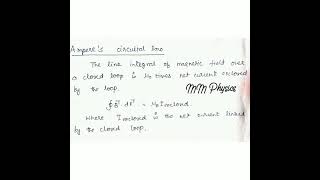 Ampere's circuital law
The line integral of magnetic field over
a closed loop is μ₀ times net current enclosed
by the loop.
MM Physics
∮B⃗.dl⃗ = μ₀ I enclosed.
Where I enclosed is the net current linked
by the closed loop.